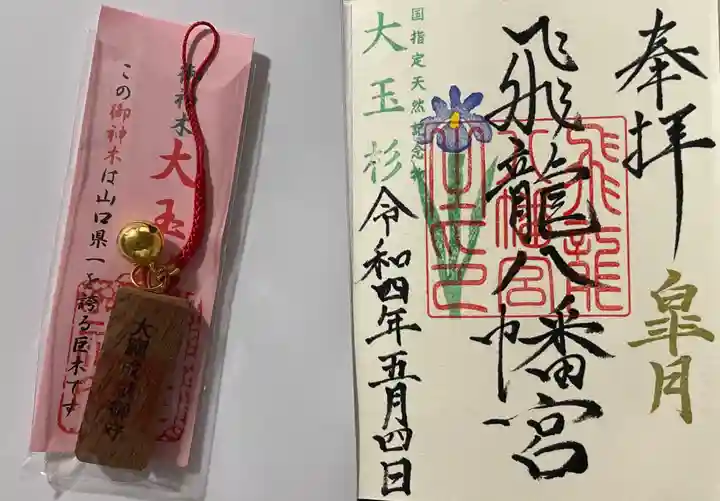 御神木
大玉
この御神木は山口県一を誇る巨木です
大願成就御守
奉拝
皐月
飛龍八幡宮
国指定天然記念物
大玉杉
令和四年五月四日